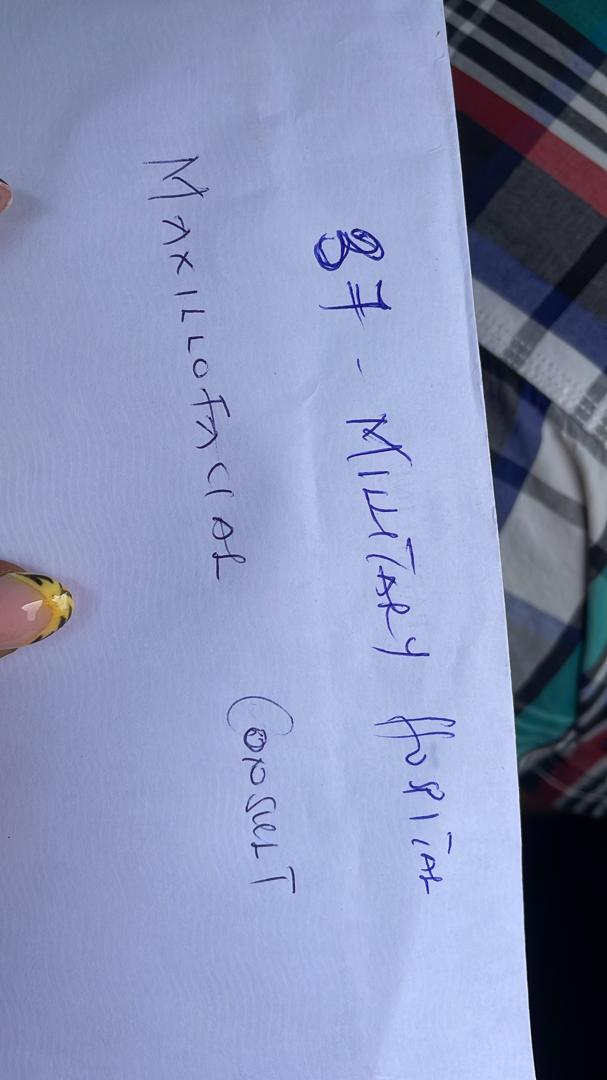 37 - MILITARY HOSPITAL
MAXILLOFACIAL CONSULT